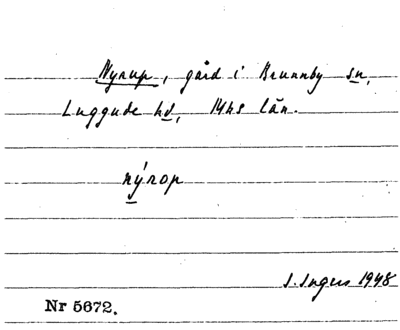 Nyrup, gård i Brunnby sn,
Luggude hd, Mhs län.
nýrop
I. Ingers 1948
Nr 5672.